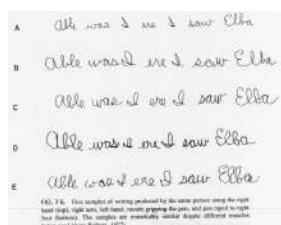 A able was I ere I saw Elba
B able was I ere I saw Elba
C able was I ere I saw Elba
D able was I ere I saw Elba
E able was I ere I saw Elba
FIG. 7.6. Five samples of writing produced by the same person using the right
hand (top), right arm, left hand, mouth gripping the pen, and pen taped to right
foot (bottom). The samples are remarkably similar despite different muscles